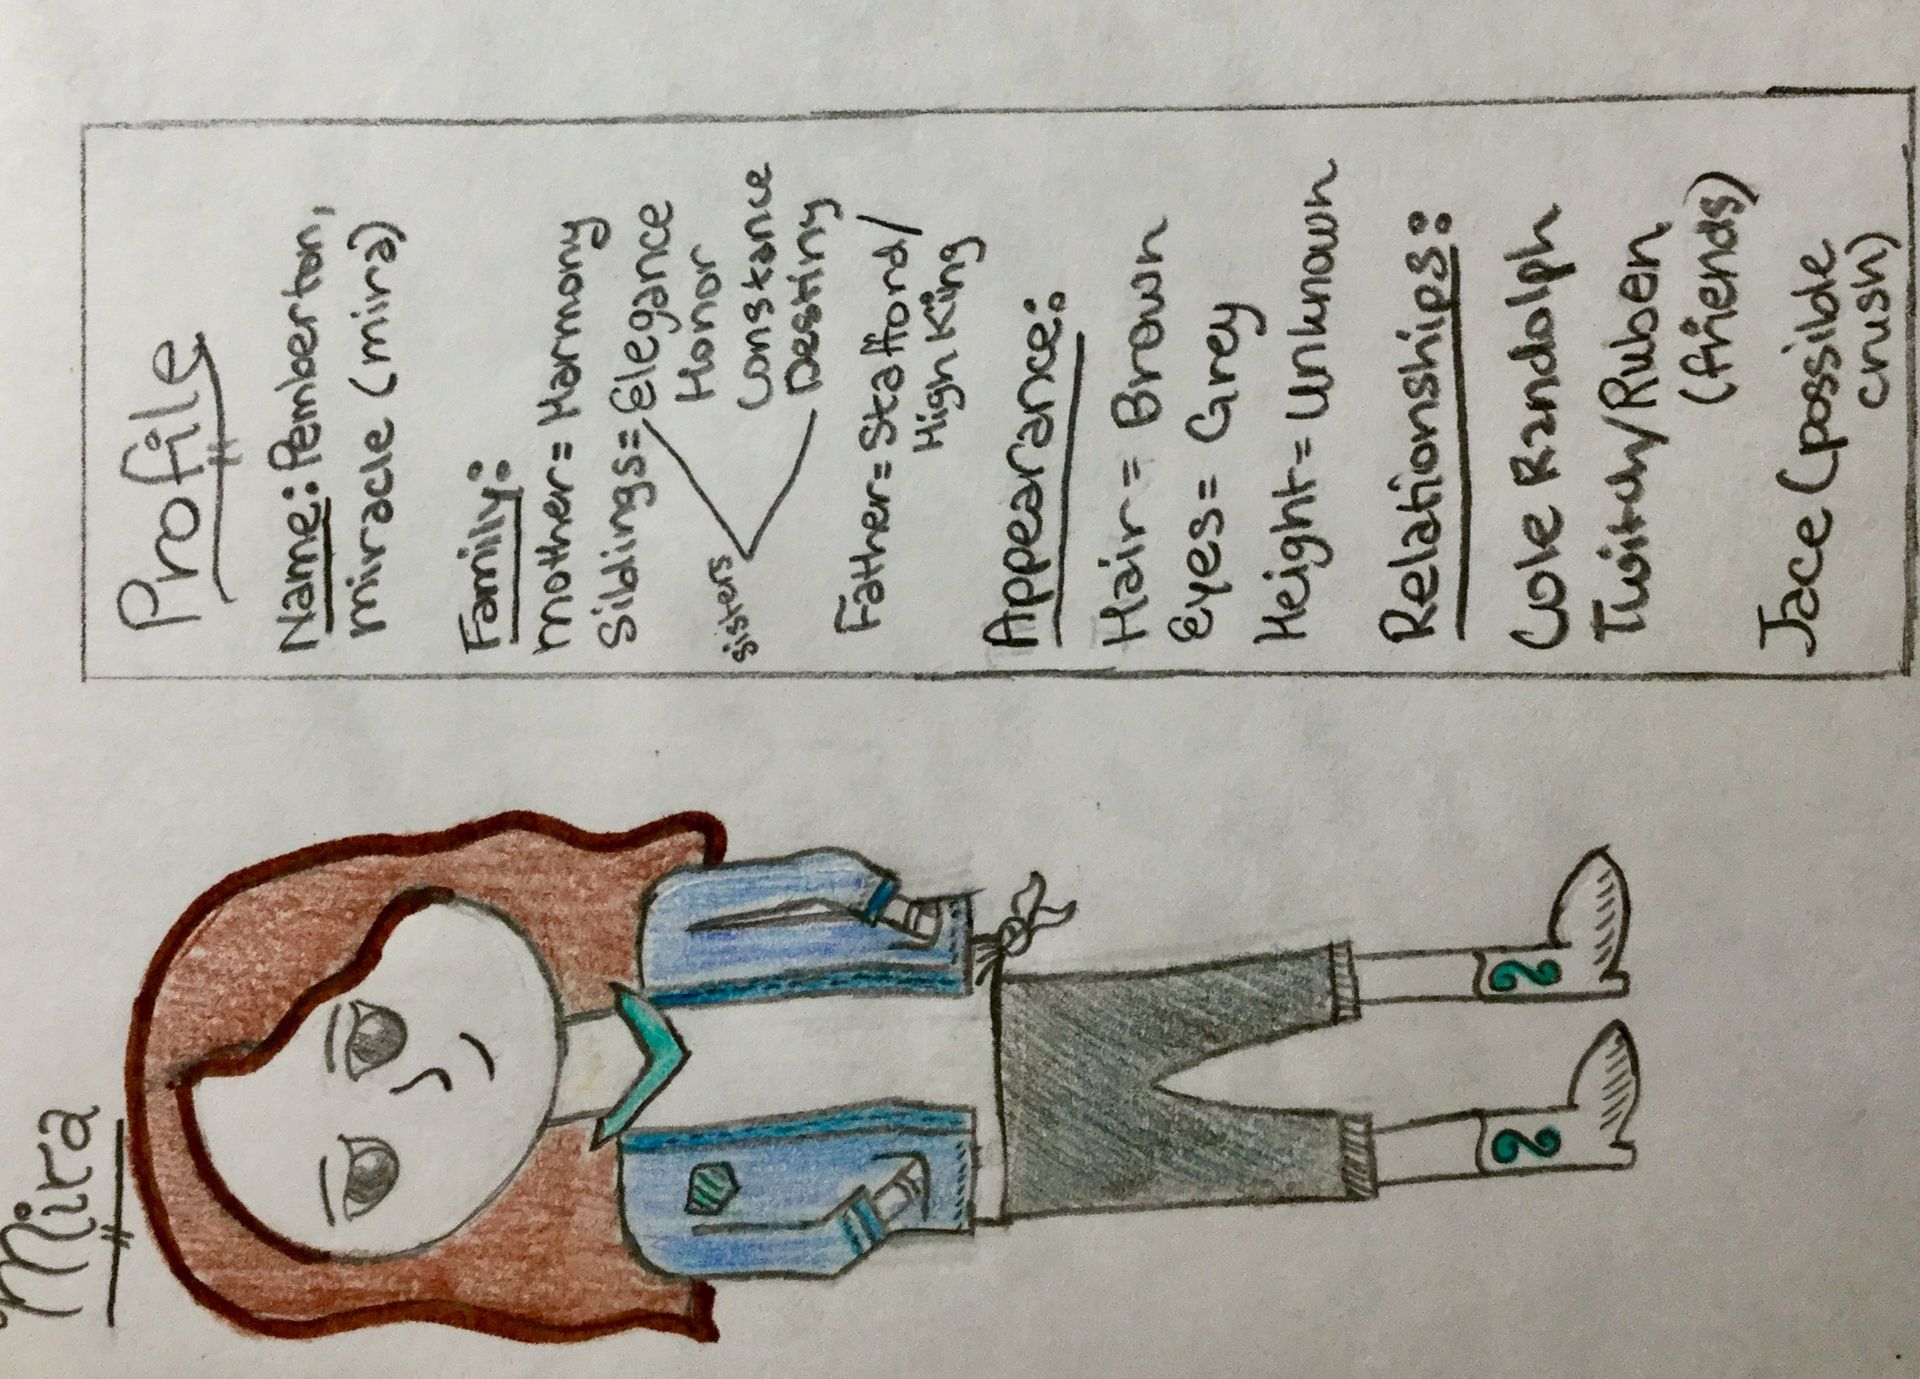 Mira
Profile
Name: Pemberton,
Miracle (mira)
Family:
Mother= Harmony
Siblings= Elegance
Honor
Constance
sisters
Destiny
Father= Stafford/
High King
Appearance:
Hair = Brown
Eyes = Grey
Height = Unknown
Relationships:
Cole Randolph
/Ruben
(friends)
Jace (possible
crush)